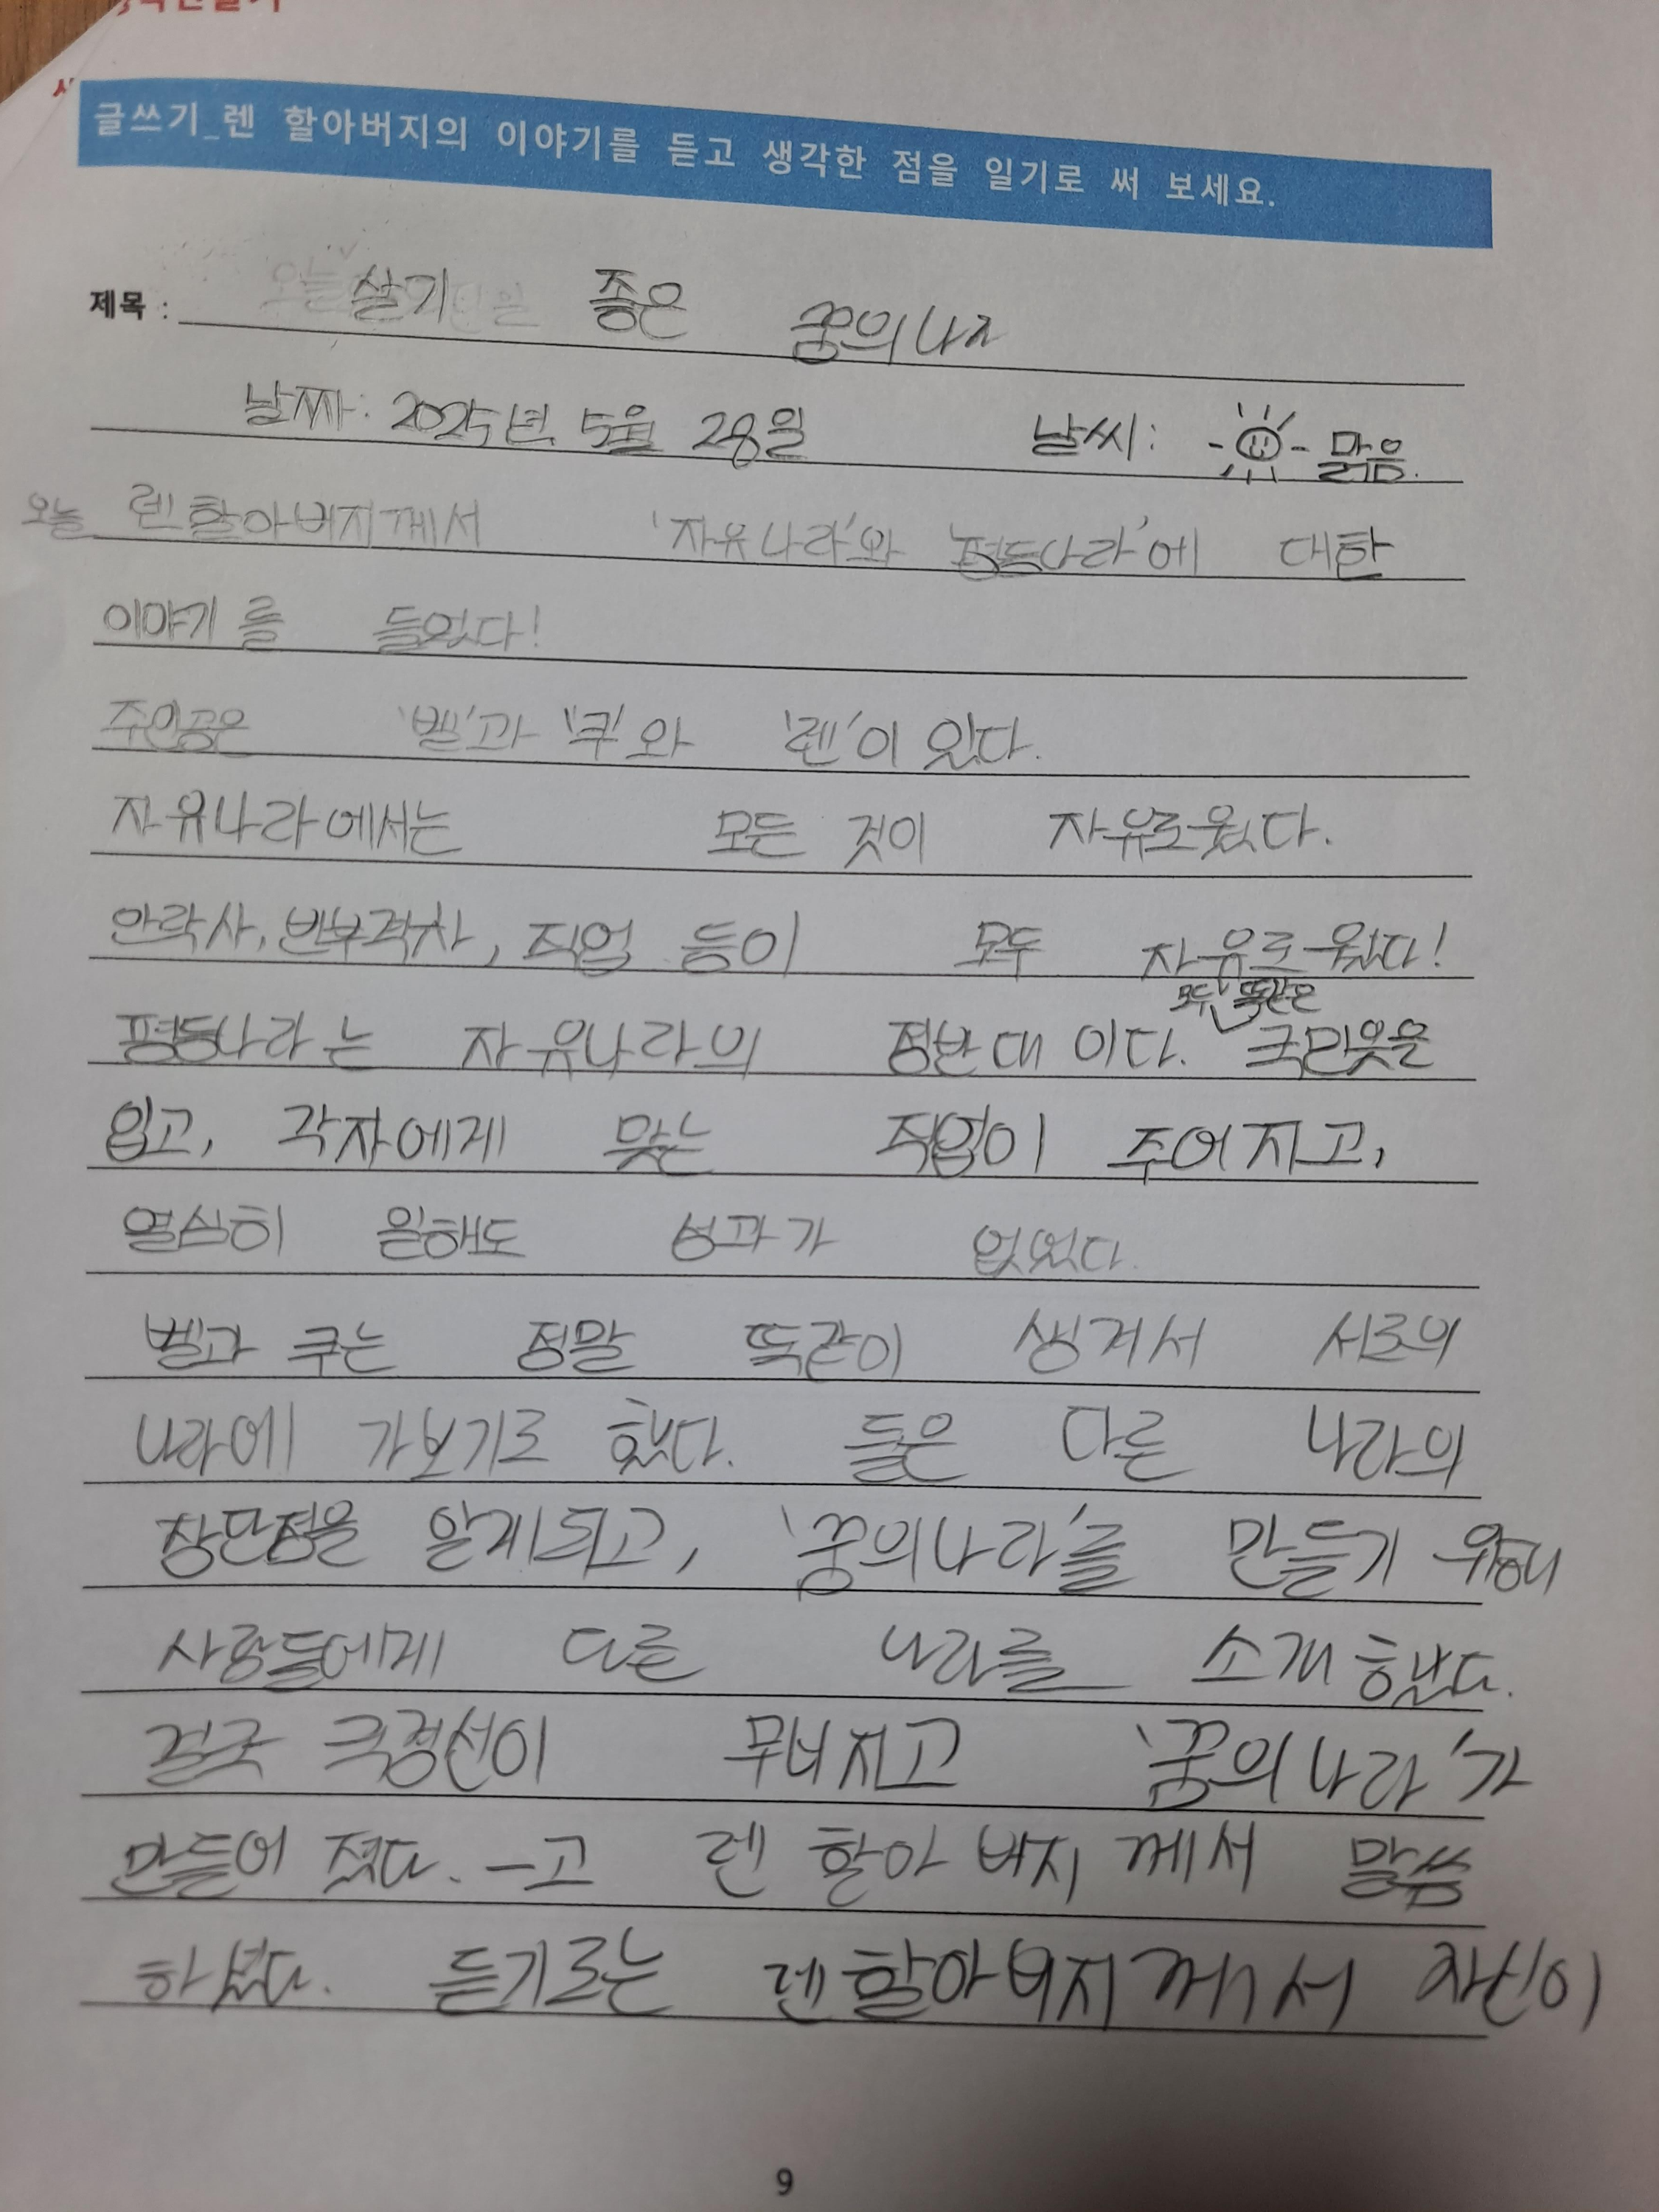 글쓰기_렌 할아버지의 이야기를 듣고 생각한 점을 일기로 써 보세요.
제목 : 살기 좋은 꿈의나라
날짜: 2025년 5월 28일 날씨: 맑음.
오늘 렌할아버지께서 '자유나라'와 '평등나라'에 대한
이야기를 들었다!
주인공은 '벨'과 '쿠'와 '렌'이 있다.
자유나라에서는 모든 것이 자유로웠다.
안락사, 빈부격차, 직업 등이 모두 자유로웠다!
평등나라는 자유나라의 정반대이다. 모두 똑같은 국민옷을
입고, 각자에게 맞는 직업이 주어지고,
열심히 일해도 성과가 없었다.
벨과 쿠는 정말 똑같이 생겨서 서로의
나라에 가보기로 했다. 둘은 다른 나라의
장단점을 알게되고, '꿈의나라'를 만들기 위해
사람들에게 다른 나라를 소개했다.
결국 국경선이 무너지고 '꿈의나라'가
만들어 졌다. -고 렌 할아버지께서 말씀
하셨다. 듣기로는 렌할아버지께서 자신이
9